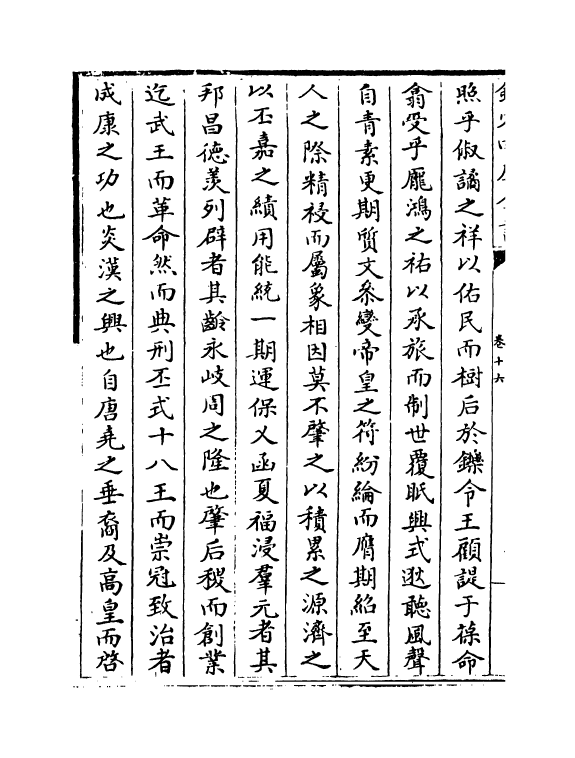 卷十六
照乎俶譎之祥以佑民而樹后於鑠令王顧諟于葆命
翕受乎龎鴻之祐以承旅而制世覆眂興式逖聽風聲
自青素更期質文叅變帝皇之符紛綸而膺期紹至天
人之際精祲而屬象相因莫不肇之以積累之源濟之
以丕嘉之績用能統一期運保乂函夏福浸羣元者其
邦昌徳羡列辟者其齡永岐周之隆也肇后稷而創業
迄武王而革命然而典刑丕式十八王而崇冠致治者
成康之功也炎漢之興也自唐堯之垂裔及高皇而啓